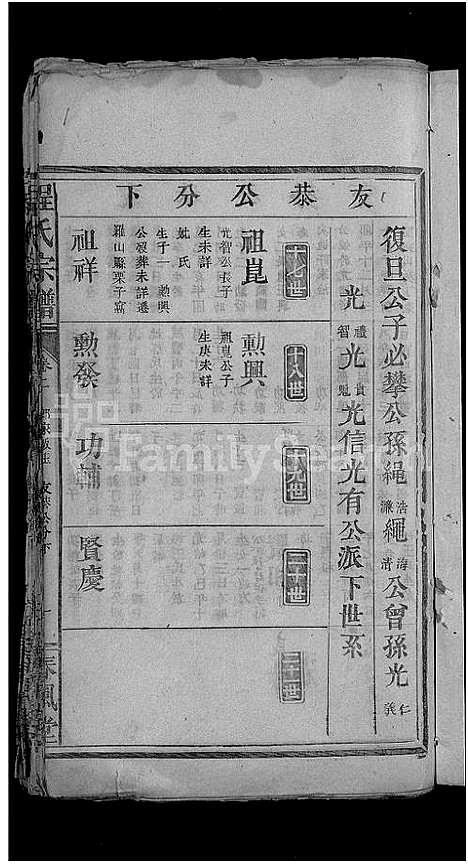 友恭公分下
復旦公子必攀公孫繩浩濂繩海清公曾孫光仁義
光禮智光貴魁光信光有公派下世系
十七世
十八世
十九世
二十世
二十一世
祖崑
光智公長子
生未詳
妣氏
生子一 勳興
公妣葬未詳遷
羅山縣栗子窩
勳興
祖崑公子
生庚未詳
祖祥
勳發
功輔
賢慶
程氏宗譜
卷十
友恭公分下
FamilySearch